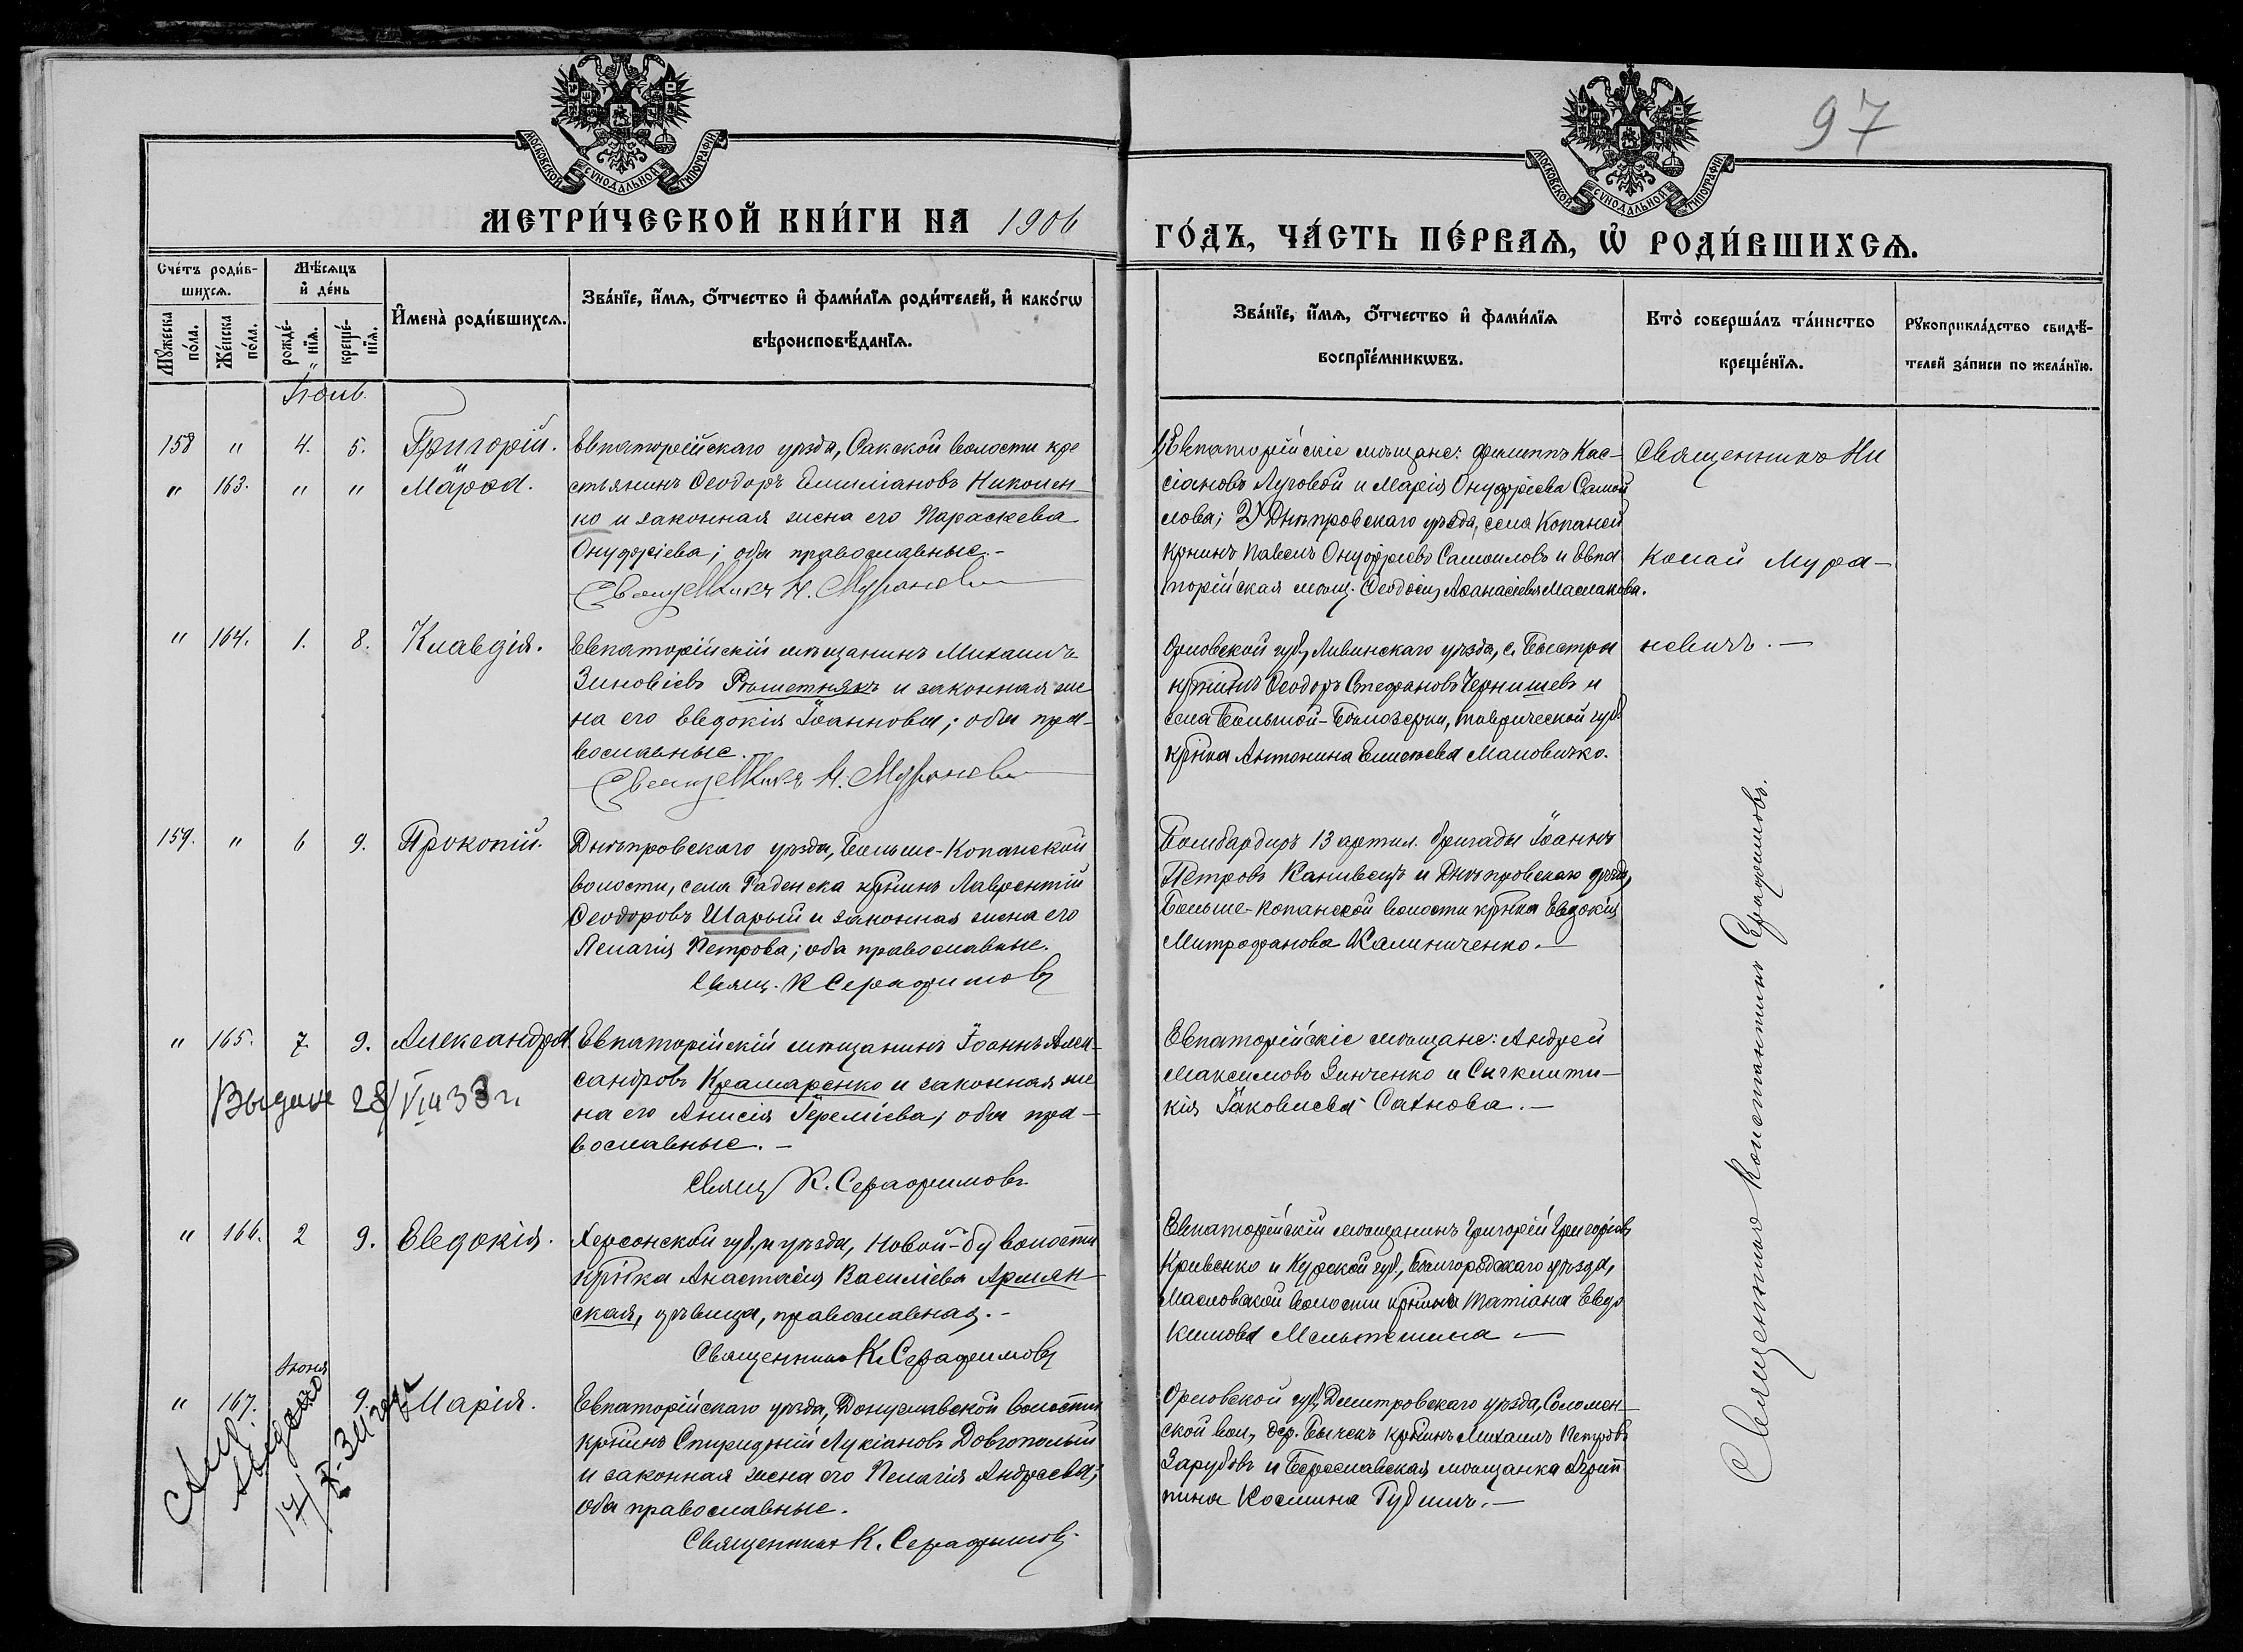 97
МОСКОВСКОЙ СѴНОДАЛЬНОЙ ТИПОГРАФІИ
МОСКОВСКОЙ СѴНОДАЛЬНОЙ ТИПОГРАФІИ
МЕТРИ́ЧЕСКОЙ КНИ́ГИ НА 1906
ГО́ДЪ, ЧА́СТЬ ПЕ́РВАѦ, Ѡ҆ РОДИ́ВШИХСѦ.
Сче́тъ роди́в-
шихсѧ.
Мꙋ́жеска по́ла.
Же́нска по́ла.
Мѣ́сѧцъ
и҆ де́нь
рожде́-
нїѧ.
креще́-
нїѧ.
И҆мена̀ роди́вшихсѧ.
Зва́нїе, и҆́мѧ, ѻ҆́тчество и҆ фами́лїѧ роди́телей, и҆ како́гѡ
вѣроисповѣ́данїѧ.
Зва́нїе, и҆́мѧ, ѻ҆́тчество и҆ фами́лїѧ
воспрїе́мникѡвъ.
Кто̀ соверша́лъ та́инство
креще́нїѧ.
Рꙋкоприкла́дство свидѣ́-
телей за́писи по жела́нїю.
Іюль.
158 " 4. 5. Григорій.
" 163. " " Марѳа.
Евпаторійскаго уѣзда, Сакской волости кре
стьянинъ Ѳеодоръ Емиліановъ Николен
ко и законная жена его Параскева
Онуфріева; оба православные.-
Священникъ Н. Муранев
1) Евпаторійскіе мѣщане: Филиппъ Кас-
сіановъ Луговой и Марія Онуфріева Самой
лова; 2) Днѣпровскаго уѣзда, села Копаней
крнинъ Павелъ Онуфріевъ Самоиловъ и Евпа
торійская мѣщ. Ѳеодосія Аѳанасіева Маслакова.
Священникъ Ни
колай Мура-
невичъ.-
" 164. 1. 8. Клавдія.
Евпаторійскій мѣщанинъ Михаилъ
Зиновіевъ Рѣшетнякъ и законная же
на его Евдокія Іоаннова; оба пра-
вославные.
Священникъ Н. Муранев
Орловской губ., Ливинскаго уѣзда, с. Быстра
крнинъ Ѳеодоръ Стефановъ Чернишевъ и
села Большой-Бѣлозерки, Таврической губ.
крнка Антонина Елисѣева Маловичко.
159. " 6 9. Прокопій.
Днѣпровскаго уѣзда, Больше-Копанской
волости, села Раденска крнинъ Лаврентій
Ѳеодоровъ Шарый и законная жена его
Пелагія Петрова; оба православные.
Свящ. К Серафимовъ
Бомбардиръ 13 артил. бригады Іоаннъ
Петровъ Канивецъ и Днѣпровскаго уѣзда,
Больше-Копанской волости крнка Евдокія
Митрофанова Калиниченко.-
Священникъ Константинъ Серафимовъ.
" 165. 7. 9. Александра
Выдано 28/VIII 33 г.
Евпаторійскій мѣщанинъ Іоаннъ Алек-
сандровъ Крамаренко и законная же
на его Анисія Іереміева; оба пра-
вославные.-
Свящ. К. Серафимовъ
Евпаторійскіе мѣщане: Андрей
Максимовъ Зинченко и Сигклити-
кія Іаковлева Сахнова.-
" 166. 2 9. Евдокія.
Херсонской губ. и уѣзда, Новой-Бу волости
крнка Анастасія Василіева Армян-
ская, дѣвица, православная.-
Священникъ К. Серафимовъ
Евпаторійскій мѣщанинъ Григорій Григоріевъ
Кривенко и Курской губ., Бѣлгородскаго уѣзда,
Масловской волости крнка Татіана Евдо
кимова Мельтешина -
Іюня
" 167. 9. Марія.
17/X-34 года
Евпаторійскаго уѣзда, Донузлавской волости
крнинъ Спиридній Лукіановъ Довгополый
и законная жена его Пелагія Андреева;
оба православные.
Священникъ К. Серафимовъ
Орловской губ., Дмитровскаго уѣзда, Соломен-
ской вол., дер. Бычекъ крнинъ Михаилъ Петровъ
Зарубовъ и Береславская мѣщанка Агрип
пина Космина Губишъ.-